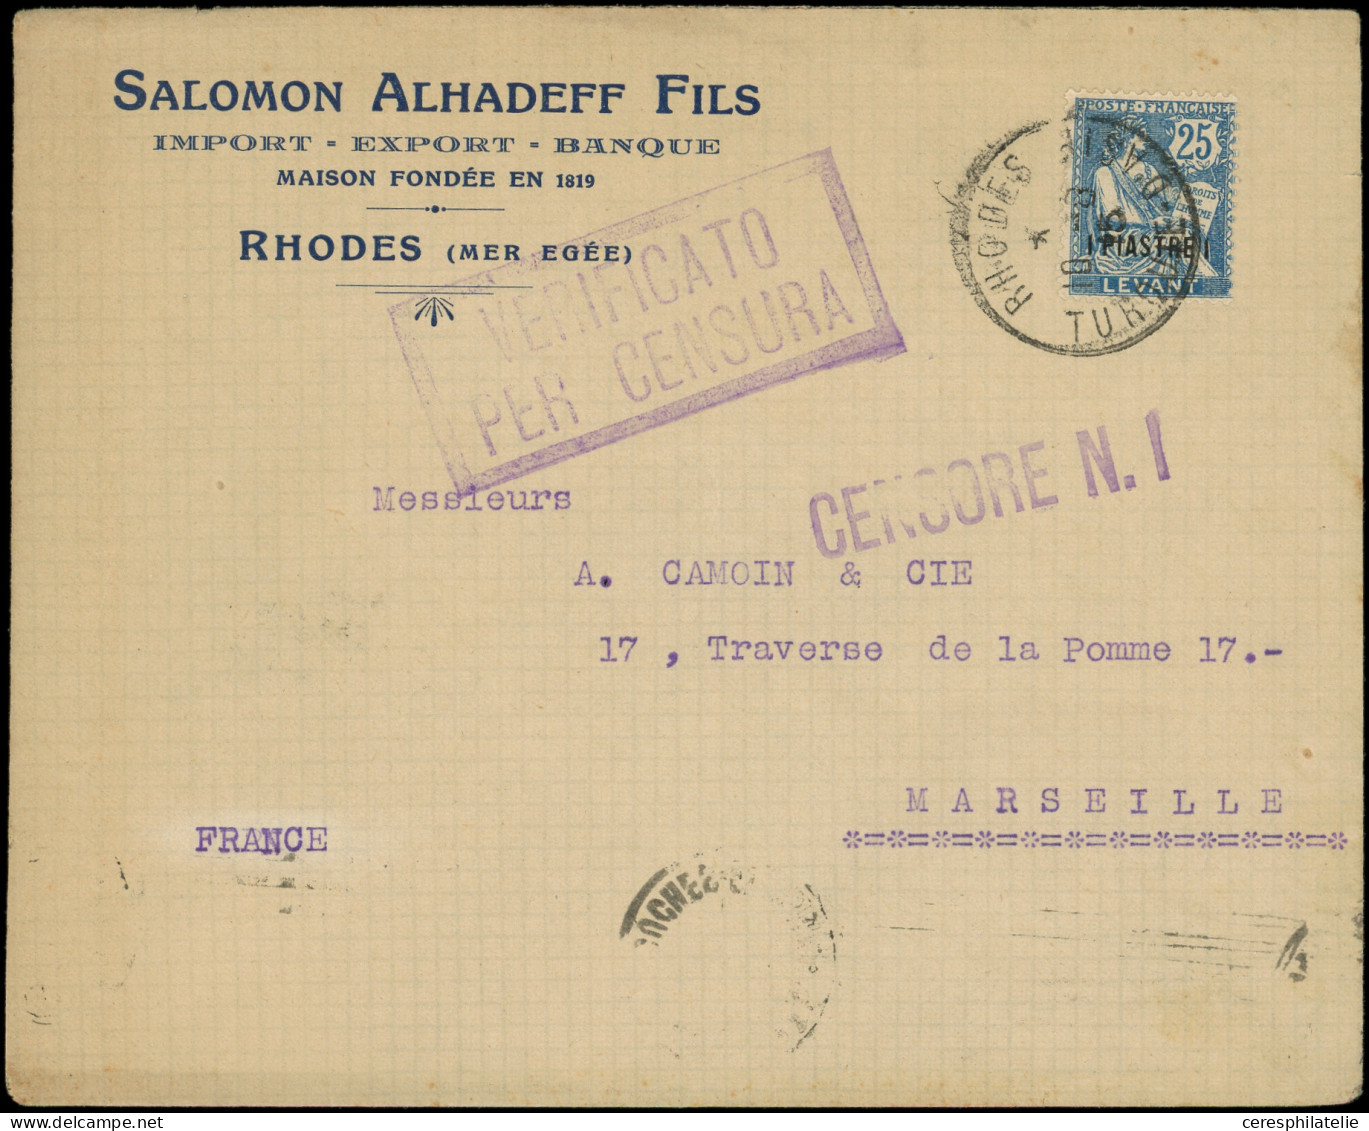 SALOMON ALHADEFF FILS
IMPORT - EXPORT - BANQUE
MAISON FONDÉE EN 1819
RHODES (MER EGÉE)
POSTE · FRANÇAISE
25
1 PIASTRE 1
LEVANT
RHODES
TURQ
VERIFICATO
PER CENSURA
CENSORE N. 1
Messieurs
A. CAMOIN & CIE
17 , Traverse de la Pomme 17.-
MARSEILLE
*=*=*=*=*=*=*=*=*=*=*=*
FRANCE
ceresphilatelie